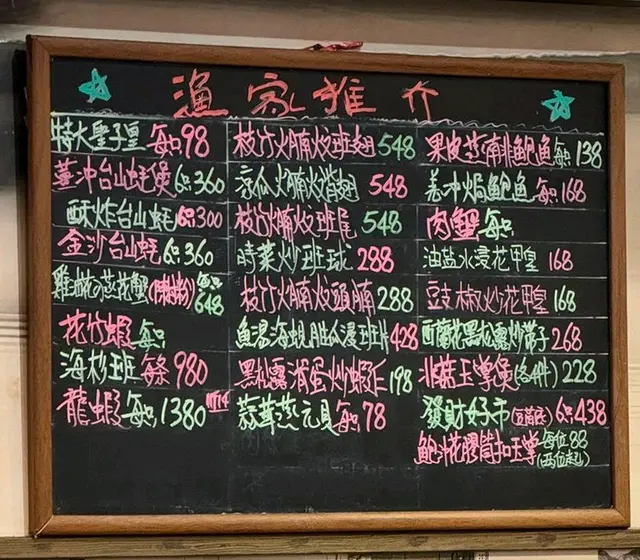 漁家推介
特大聖子皇 每只98
薑沖台山蚝煲 6只360
酥炸台山蚝 6只300
金沙台山蚝 6只360
雞油 蒸花蟹(陳村粉)每只648
花竹蝦 每只
海杉班 每条980
龍蝦 每只1380
枝竹火腩炆班翅 548
涼瓜火腩炆班翅 548
枝竹火腩炆班尾 548
時菜炒班球 288
枝竹火腩炆頭腩 288
魚湯海蜆胜瓜浸班片 428
黑松露滑蛋炒蝦仁 198
蒜蓉蒸元貝 每只78
果皮蒸南非鮑魚 每只138
薑沖焗鮑魚 每只168
肉蟹 每只
油鹽水浸花甲皇 168
豉椒炒花甲皇 168
西蘭花黑松露炒带子 268
北菇玉掌煲(8件) 228
發財好市 6只438
鮑汁花膠筒扣玉掌 每位88
(两位起)